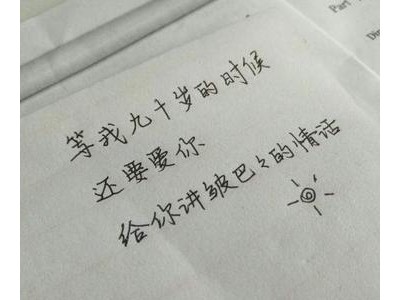 等我九十岁的时候
还要爱你
给你讲皱巴々的情话
Part
Dis